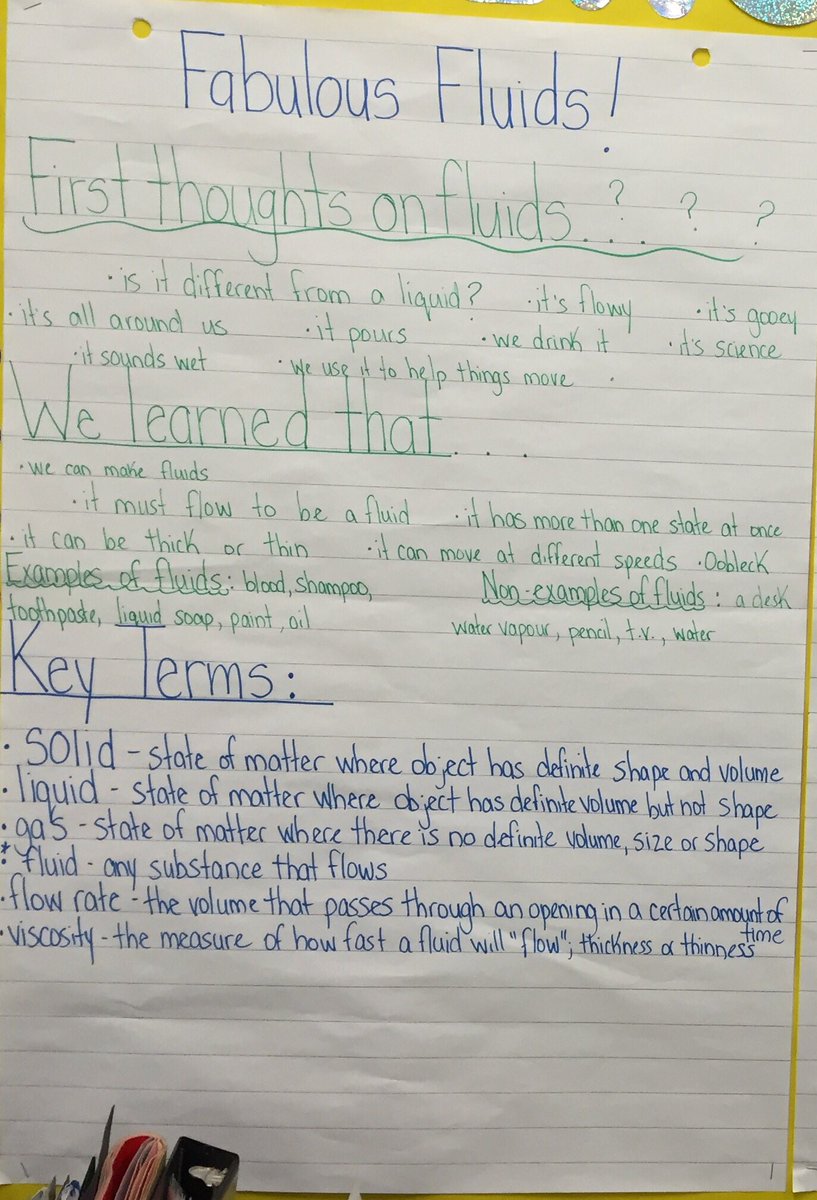 Fabulous Fluids!
First thoughts on fluids....? ? ?
·is it different from a liquid? ·it's flowy ·it's gooey
·it's all around us ·it pours ·we drink it ·it's science
·it sounds wet ·we use it to help things move ·
We learned that....
·we can make fluids
·it must flow to be a fluid ·it has more than one state at once
·it can be thick or thin ·it can move at different speeds ·Oobleck
Examples of fluids: blood, shampoo, Non-examples of fluids: a desk
toothpaste, liquid soap, paint, oil water vapour, pencil, t.v., water
Key Terms:
·solid - state of matter where object has definite shape and volume
·liquid - state of matter where object has definite volume but not shape
·gas - state of matter where there is no definite volume, size or shape
*·fluid - any substance that flows
·flow rate - the volume that passes through an opening in a certain amount of
time
·viscosity - the measure of how fast a fluid will "flow"; thickness or thinness